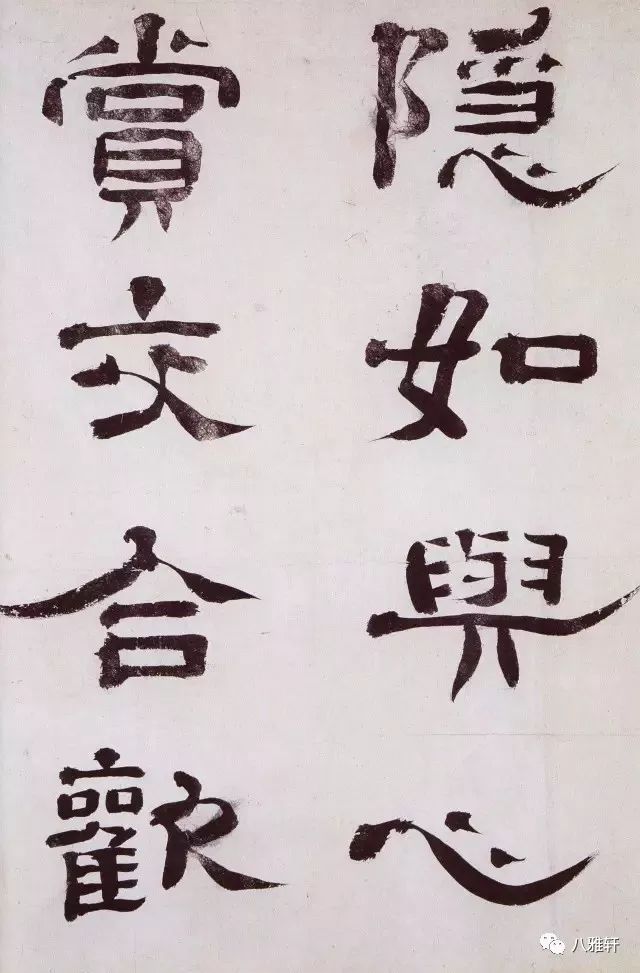 隐如與心
賞交合歡
八雅轩